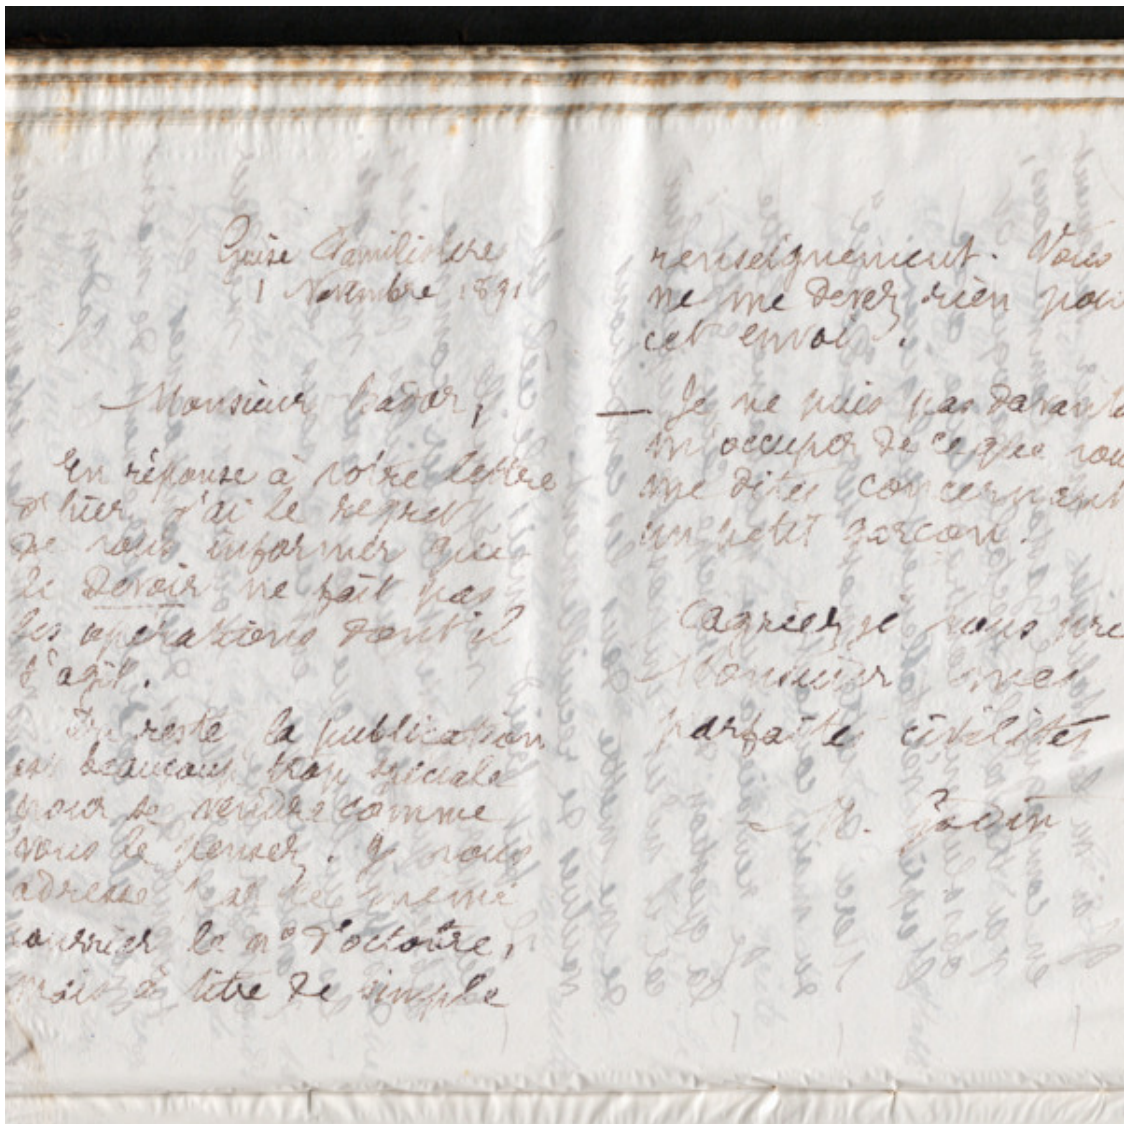 Guise Familistère
1 Novembre 1891
Monsieur Bador,
En réponse à votre lettre
d'hier j'ai le regret
de vous informer que
le Devoir ne fait pas
les opérations dont il
s'agit.
Du reste la publication
est beaucoup trop spéciale
pour se vendre comme
vous le pensez. Je vous
adresse par le même
courrier le n° d'octobre,
mais à titre de simple
renseignement. Vous
ne me devez rien pour
cet envoi.
— Je ne puis pas davanta
m'occuper de ce que vou
me dites concernant
un petit garçon.
agréez je vous prie
Monsieur mes
parfaites civilités
M. Godin